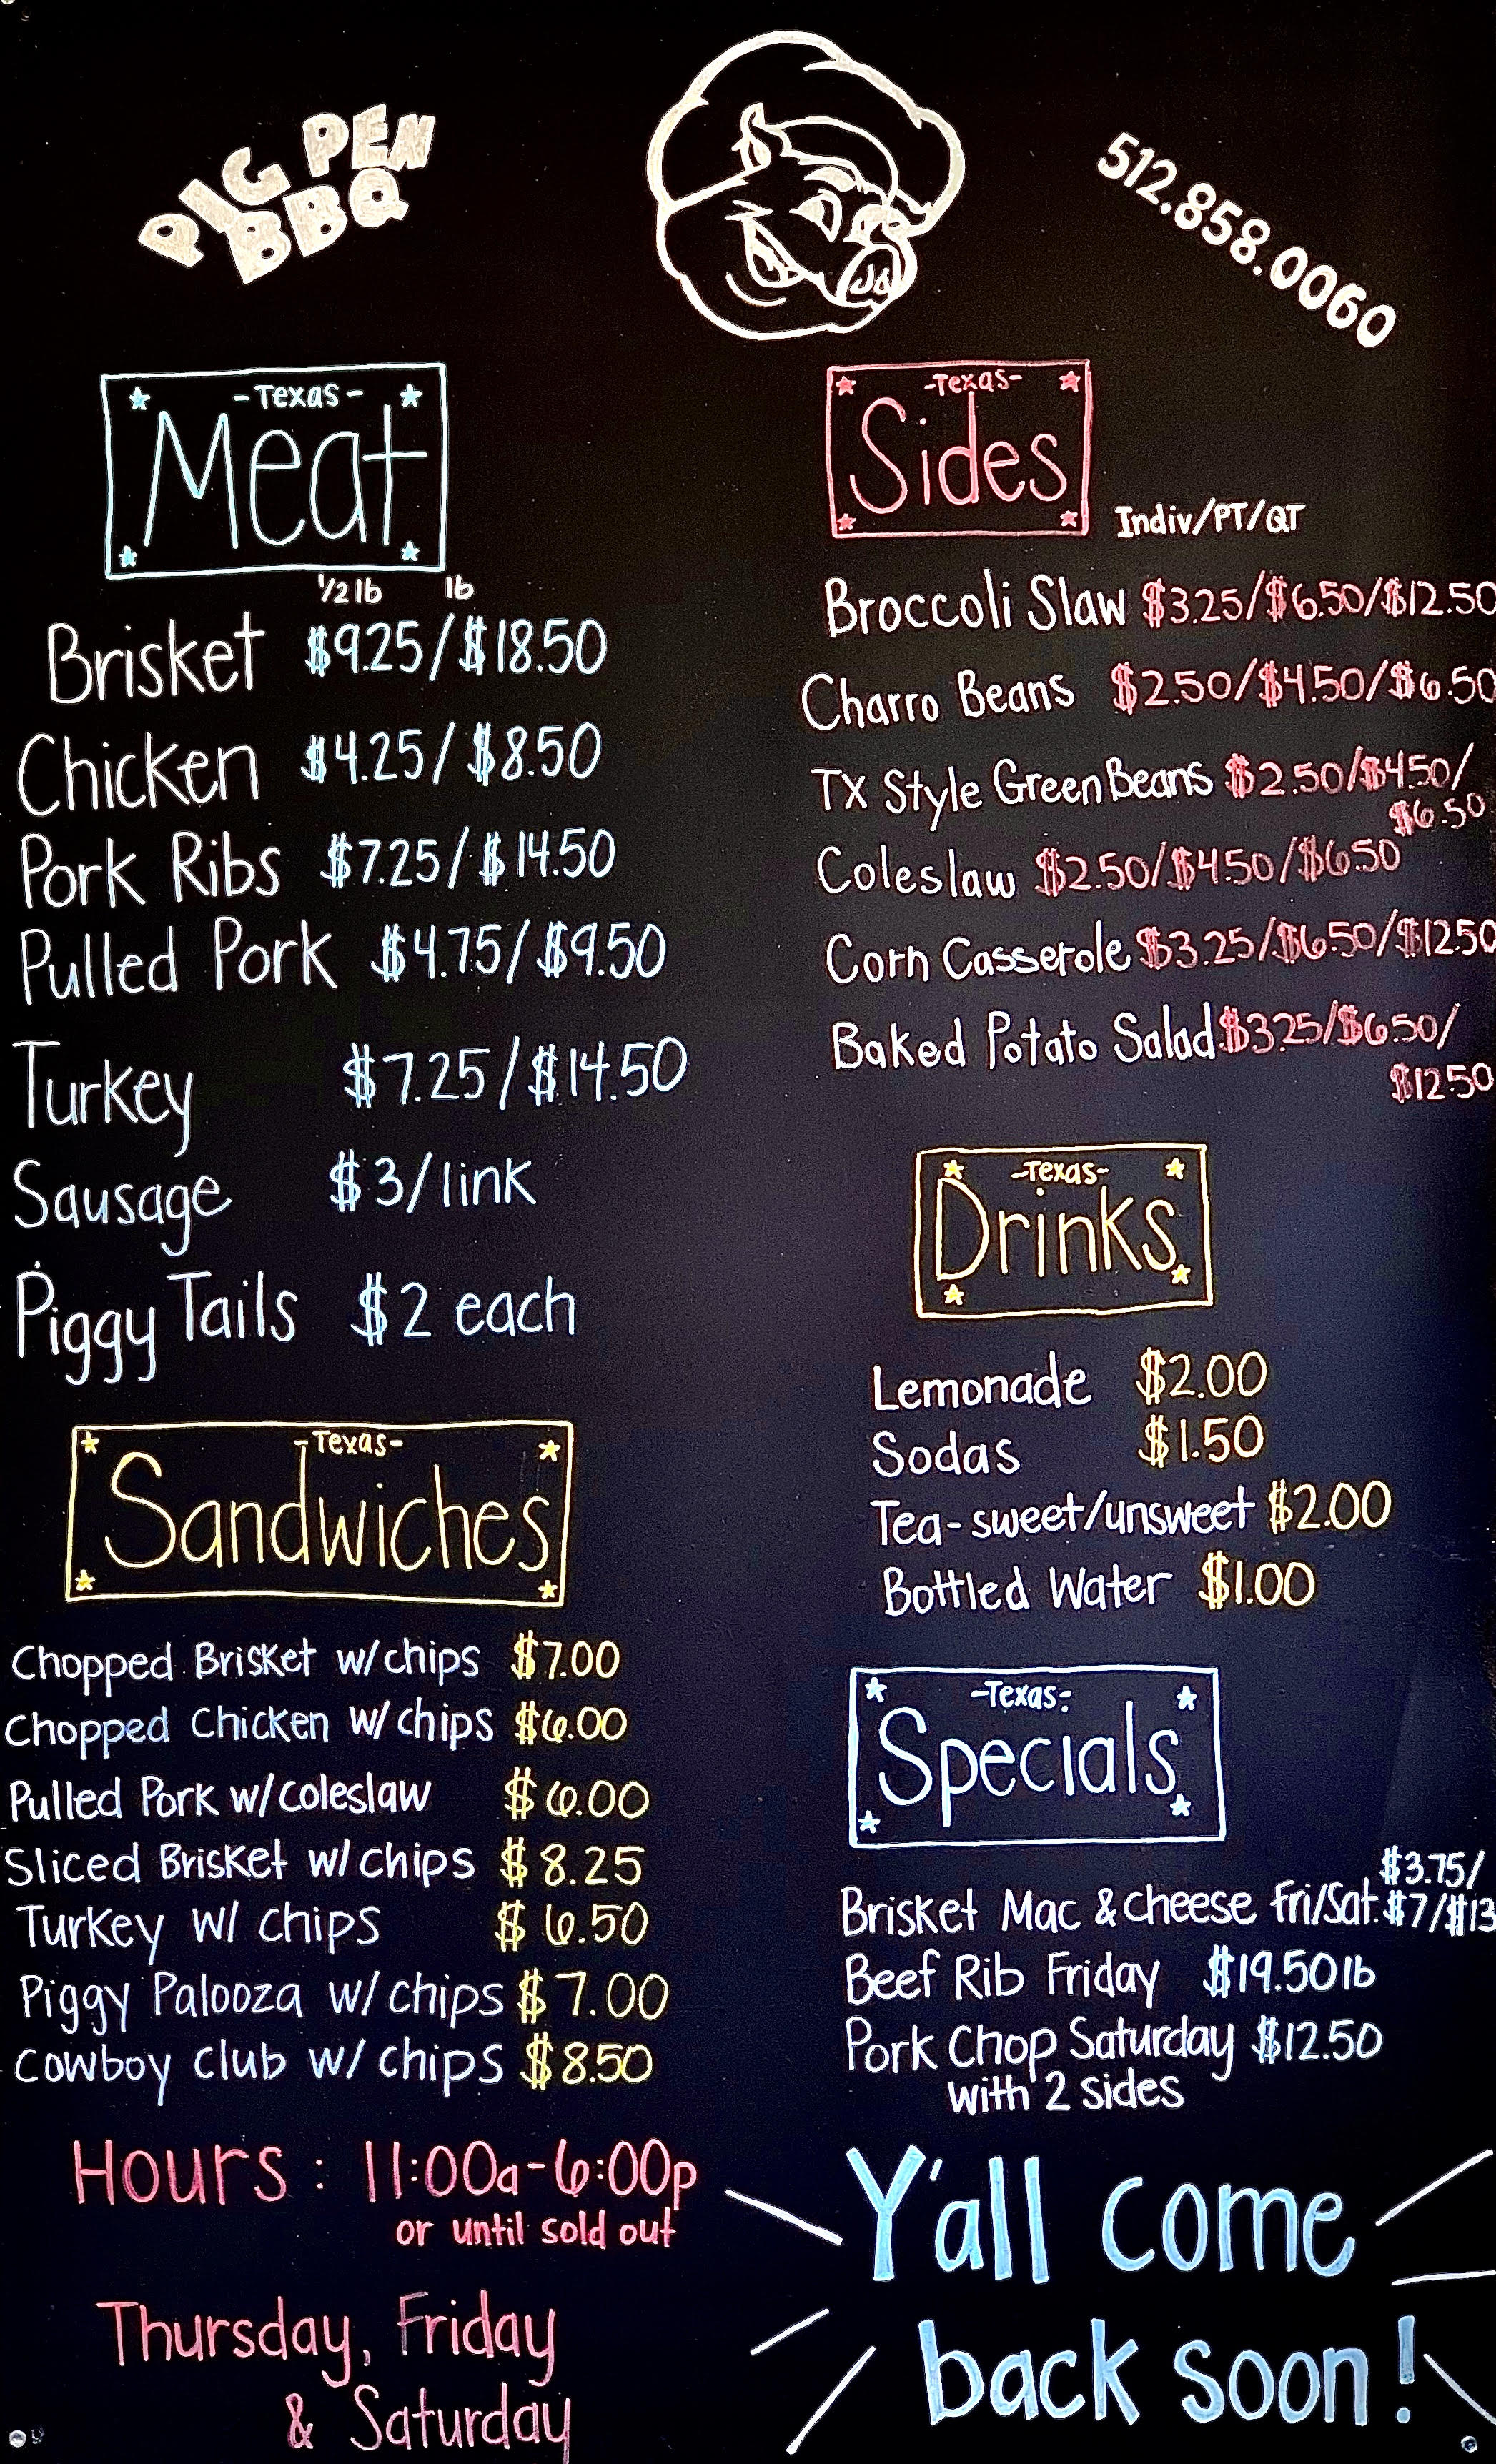 PIG PEN
BBQ
512.858.0060
-Texas-
Meat
1/2 lb lb
Brisket $9.25/$18.50
Chicken $4.25/$8.50
Pork Ribs $7.25/$14.50
Pulled Pork $4.75/$9.50
Turkey $7.25/$14.50
Sausage $3/link
Piggy Tails $2 each
-Texas-
Sandwiches
Chopped Brisket w/chips $7.00
Chopped Chicken w/chips $6.00
Pulled Pork w/coleslaw $6.00
Sliced Brisket w/chips $8.25
Turkey w/ chips $6.50
Piggy Palooza w/chips $7.00
Cowboy club w/ chips $8.50
Hours: 11:00a-6:00p
or until sold out
Thursday, Friday
& Saturday
-Texas-
Sides
Indiv/PT/QT
Broccoli Slaw $3.25/$6.50/$12.50
Charro Beans $2.50/$4.50/$6.50
TX Style Green Beans $2.50/$4.50/
$6.50
Coleslaw $2.50/$4.50/$6.50
Corn Casserole $3.25/$6.50/$12.50
Baked Potato Salad $3.25/$6.50/
$12.50
-Texas-
Drinks
Lemonade $2.00
Sodas $1.50
Tea-sweet/unsweet $2.00
Bottled Water $1.00
-Texas-
Specials
$3.75/
Brisket Mac & cheese Fri/Sat. $7/$13
Beef Rib Friday $19.50 lb
Pork Chop Saturday $12.50
with 2 sides
Y'all come
back soon!